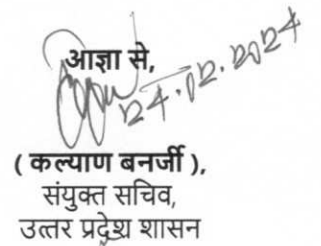 आज्ञा से,
24.02.2024
( कल्याण बनर्जी ),
संयुक्त सचिव,
उत्तर प्रदेश शासन